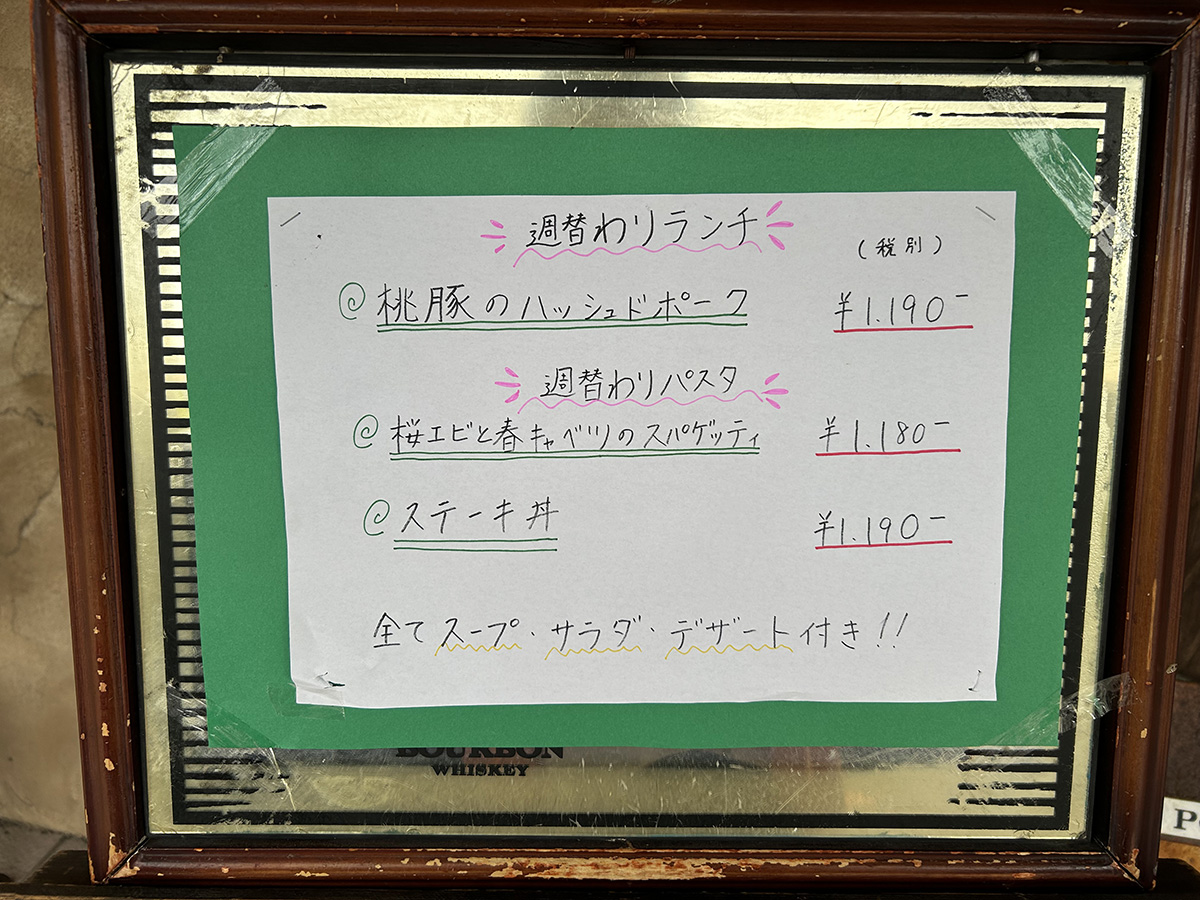 週替わりランチ
(税別)
@ 桃豚のハッシュドポーク ¥1.190-
週替わりパスタ
@ 桜エビと春キャベツのスパゲッティ ¥1.180-
@ ステーキ丼 ¥1.190-
全てスープ・サラダ・デザート付き!!
BOURBON
WHISKEY